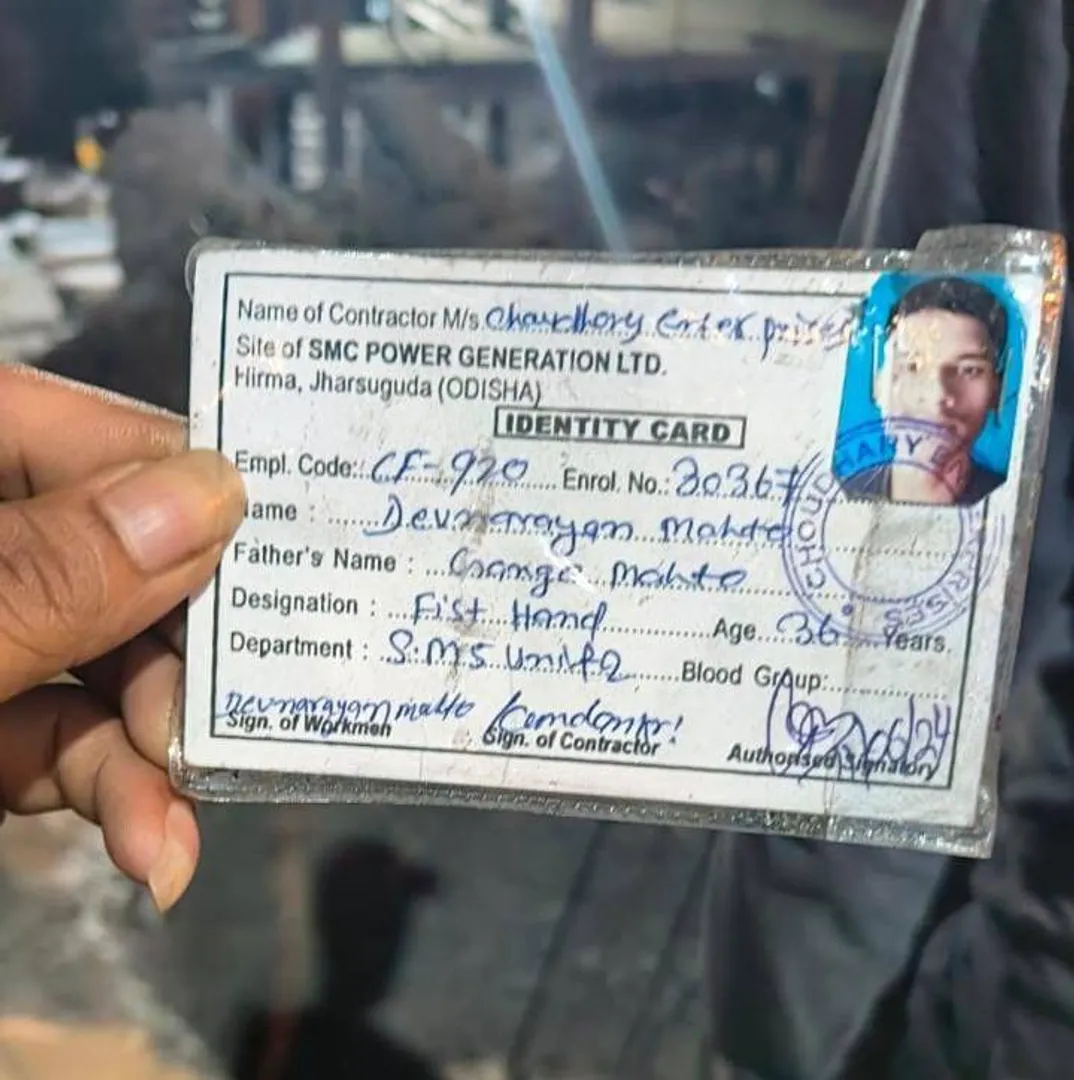 Name of Contractor M/s. Chowdhory Enterprises
Site of SMC POWER GENERATION LTD.
Hirma, Jharsuguda (ODISHA)
IDENTITY CARD
Empl. Code: CE-920 Enrol. No.: 30367
Name : Devnarayan Mahto
Father's Name : Ganga Mahto
Designation : Fist Hand Age 36 Years.
Department : S.M.S Unit-2 Blood Group:
Devnarayan mahto
Sign. of Workmen Sign. of Contractor Authorised Signatory